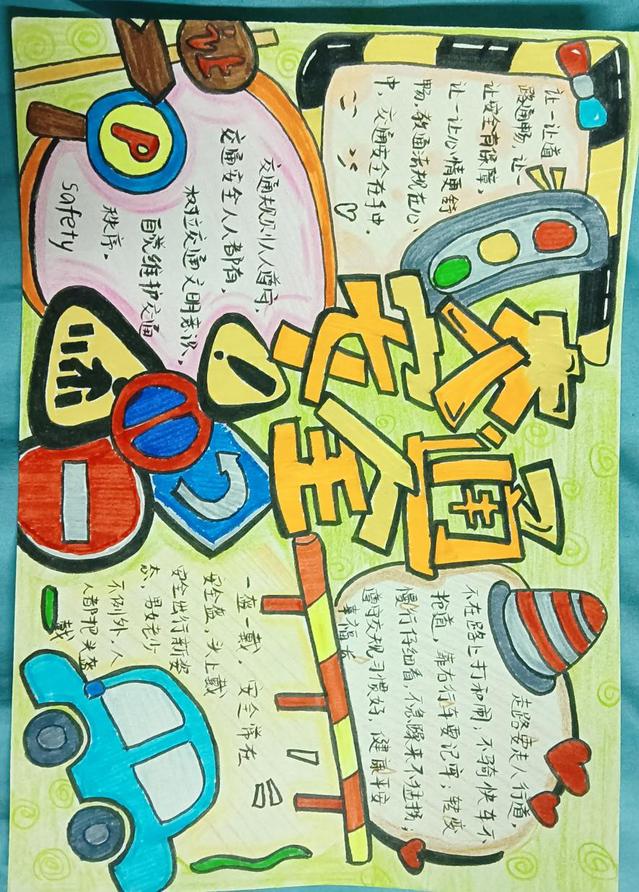 让一让道
路通畅,让一
让安全有保障,
让一让心情更舒
畅,交通法规在心
中,交通安全在手中。
交通
安全
走路要走人行道,
不在路上打和闹;不骑快车不
抢道,靠右行车要记牢;转弯
慢行仔细看,不急躁来不猛拐;
遵守交规习惯好,健康平安
幸福长
交通规则人人遵守,
交通安全人人都有。
树立交通文明意识,
自觉维护交通
秩序。
safety
P
一盔一戴,安全常在
安全盔,头上戴
安全出行新姿
态,男女老少
不例外,人
人都把头盔
戴